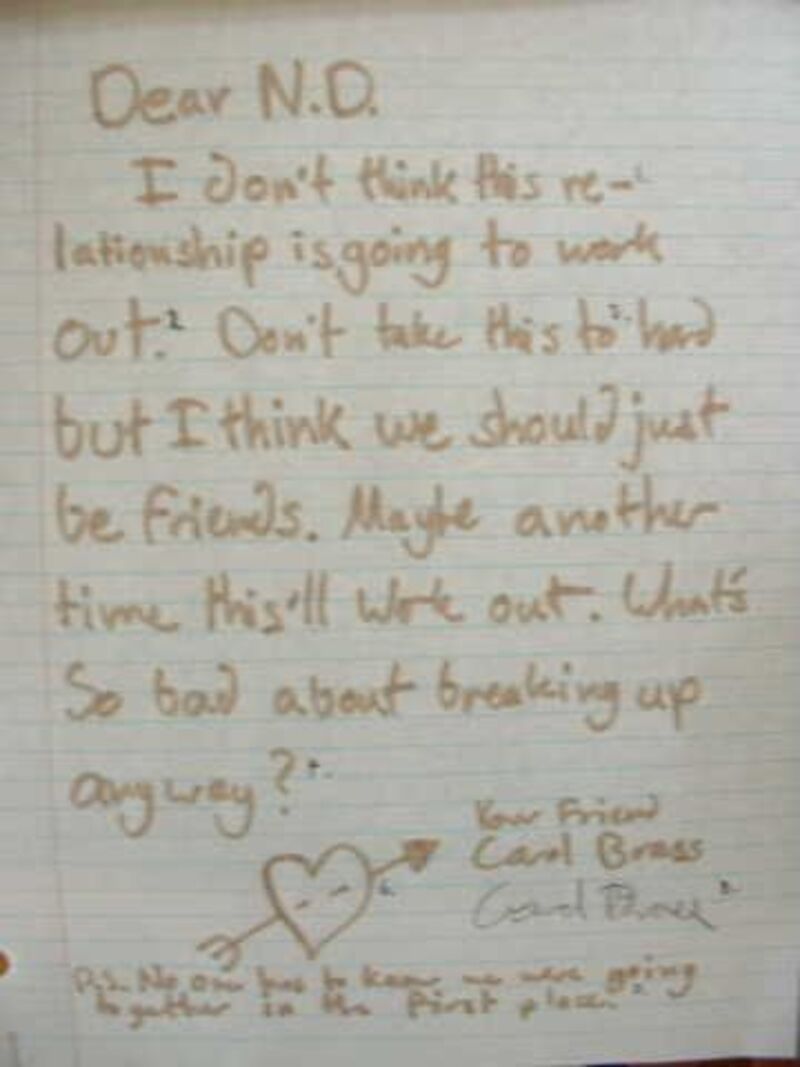 Dear N.D.
I don't think this re-
lationship is going to work
out.² Don't take this to hard
but I think we should just
be friends. Maybe another
time this'll work out. What's
So bad about breaking up
anyway?
Your Friend
Carol Brass
P.S. No one has to know we were going
together in the first place.